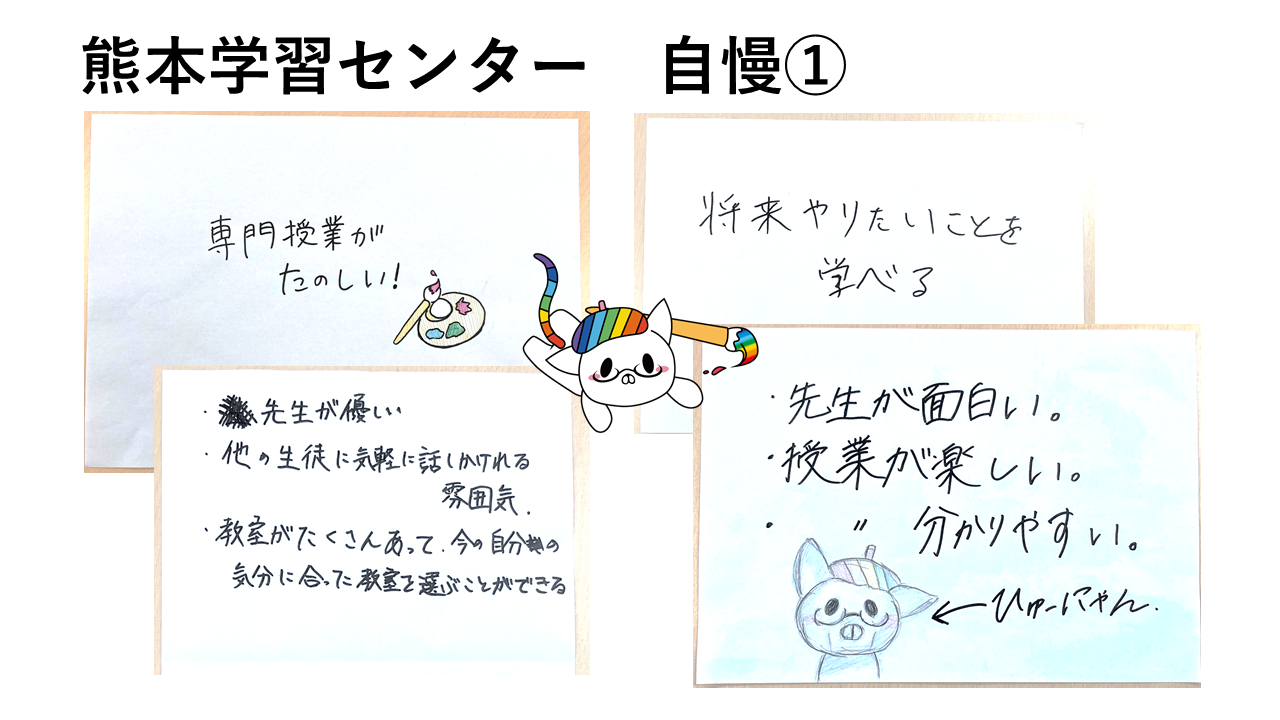 熊本学習センター　自慢①
専門授業が
たのしい!
将来やりたいことを
学べる
・先生が優しい
・他の生徒に気軽に話しかけれる
雰囲気.
・教室がたくさんあって.今の自分の
気分に合った教室を選ぶことができる
・先生が面白い。
・授業が楽しい。
・ 〃 分かりやすい。
←ひゅーにゃん.